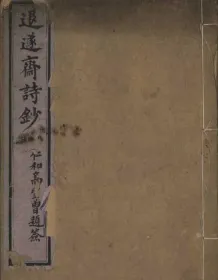 退遂齋詩鈔
仁和高學曾題簽